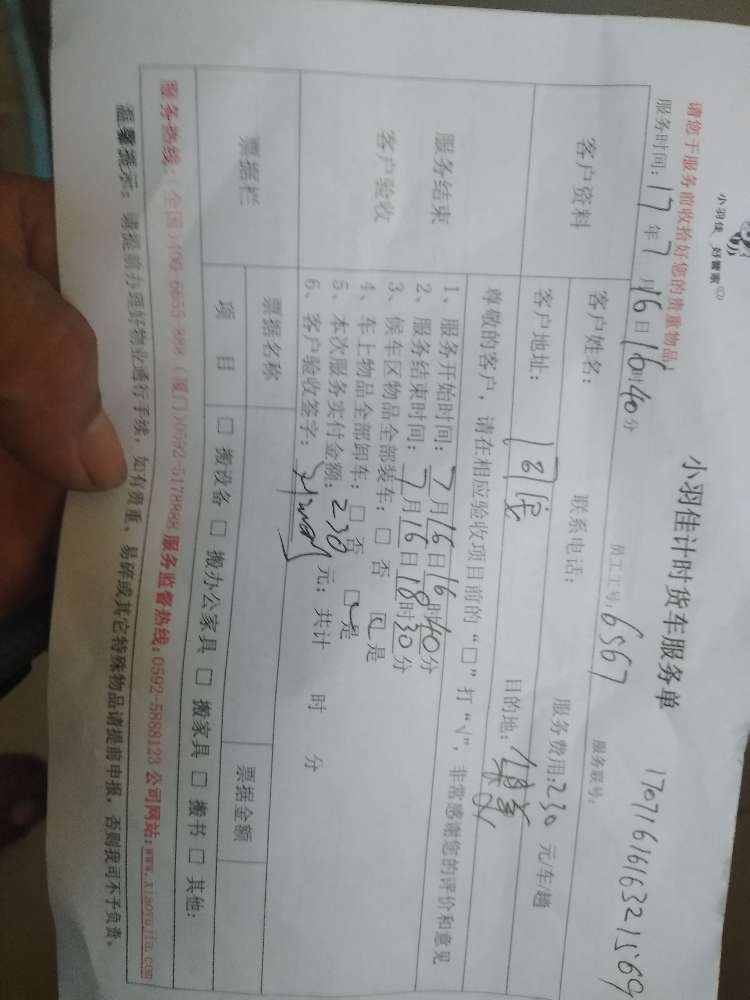 小羽佳 好管家
小羽佳计时货车服务单
请您于服务前收拾好您的贵重物品！
员工工号：6567 服务联号：1707161616321569
服务时间：17年7月16日16时40分
客户资料 客户姓名： 联系电话： 服务费用：230 元/车/趟
客户地址： 目的地：
服务结束 客户验收 尊敬的客户，请在相应验收项目前的“□”打“√”，非常感谢您的评价和意见
1、服务开始时间：7月16日16时40分
2、服务结束时间：7月16日18时30分
3、候车区物品全部装车：□ 否 ☑ 是
4、车上物品全部卸车：□ 否 ☑ 是
5、本次服务实付金额：230 元；共计 时 分
6、客户验收签字：
票据栏 票据名称 票据金额
项 目 □ 搬设备 □ 搬办公家具 □ 搬家具 □ 搬书 □ 其他：
服务热线：（全国）400-6655-888（厦门）0592-5178988 服务监督热线：0592-5888123 公司网站：www.xiaoyujia.com
温馨提示：请提前办理好物业通行手续，如有贵重、易碎或其它特殊物品请提前申报，否则我司不予负责。